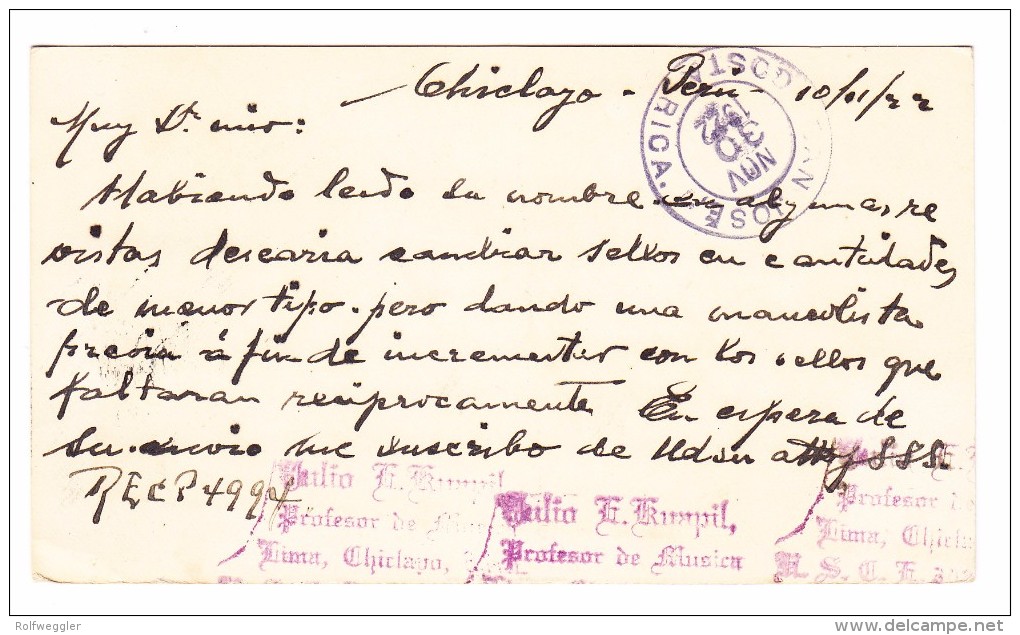 Chiclayo - Perú - 10/11/22
Muy Sr. mio:
Habiendo leido su nombre en algunas re
vistas desearia cambiar sellos en cantidades
de menor tipo. pero dando una mancolista
precia á fin de incrementar con los sellos que
faltaran reciprocamente En espera de
su envio me suscribo de Ud su atto y SSS.
RECP 4994
SAN JOSÉ COSTA RICA.
30 NOV
Julio E. Kumpil
Profesor de Mus
Lima, Chiclayo,
Julio E. Kumpil,
Profesor de Musica
Profesor de
Lima, Chicla